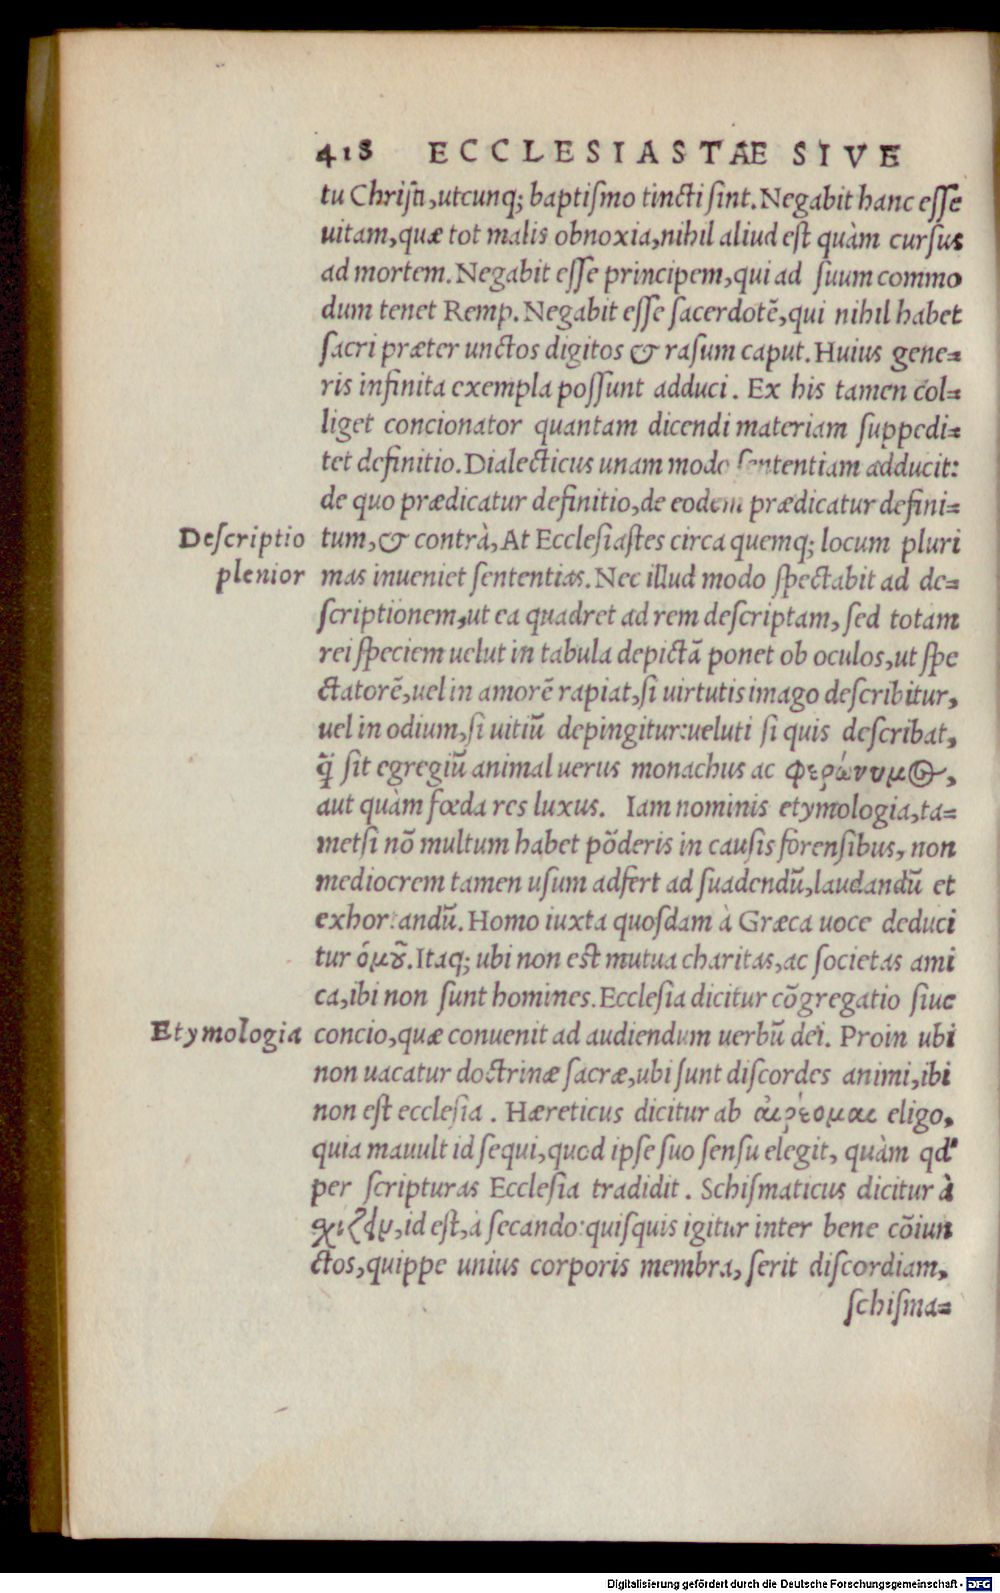 418 ECCLESIASTÆ SIVE
tu Chriſti, utcunq; baptiſmo tincti ſint. Negabit hanc eſſe
uitam, quæ tot malis obnoxia, nihil aliud eſt quàm curſus
ad mortem. Negabit eſſe principem, qui ad ſuum commo
dum tenet Remp. Negabit eſſe ſacerdotẽ, qui nihil habet
ſacri præter unctos digitos & raſum caput. Huius gene=
ris infinita exempla poſſunt adduci. Ex his tamen col=
liget concionator quantam dicendi materiam ſuppedi=
tet definitio. Dialecticus unam modo ſententiam adducit:
de quo prædicatur definitio, de eodem prædicatur defini=
Deſcriptio tum, & contrà, At Eccleſiaſtes circa quemq; locum pluri
plenior mas inueniet ſententias. Nec illud modo ſpectabit ad de=
ſcriptionem, ut ea quadret ad rem deſcriptam, ſed totam
rei ſpeciem uelut in tabula depictã ponet ob oculos, ut ſpe
ctatorẽ, uel in amorẽ rapiat, ſi uirtutis imago deſcribitur,
uel in odium, ſi uitiũ depingitur: ueluti ſi quis deſcribat,
q̃ ſit egregiũ animal uerus monachus ac φερώνυμος,
aut quàm fœda res luxus. Iam nominis etymologia, ta=
metſi nõ multum habet põderis in cauſis forenſibus, non
mediocrem tamen uſum adfert ad ſuadendũ, laudandũ et
exhortandũ. Homo iuxta quoſdam à Græca uoce deduci
tur ὁμοῦ. Itaq; ubi non eſt mutua charitas, ac ſocietas ami
ca, ibi non ſunt homines. Eccleſia dicitur cõgregatio ſiue
Etymologia concio, quæ conuenit ad audiendum uerbũ dei. Proin ubi
non uacatur doctrinæ ſacræ, ubi ſunt diſcordes animi, ibi
non eſt eccleſia. Hæreticus dicitur ab αἱρέομαι eligo,
quia mauult id ſequi, quod ipſe ſuo ſenſu elegit, quàm qd'
per ſcripturas Eccleſia tradidit. Schiſmaticus dicitur à
σχίζειν, id eſt, à ſecando: quiſquis igitur inter bene cõiun
ctos, quippe unius corporis membra, ſerit diſcordiam,
ſchiſma=
Digitalisierung gefördert durch die Deutsche Forschungsgemeinschaft - DFG